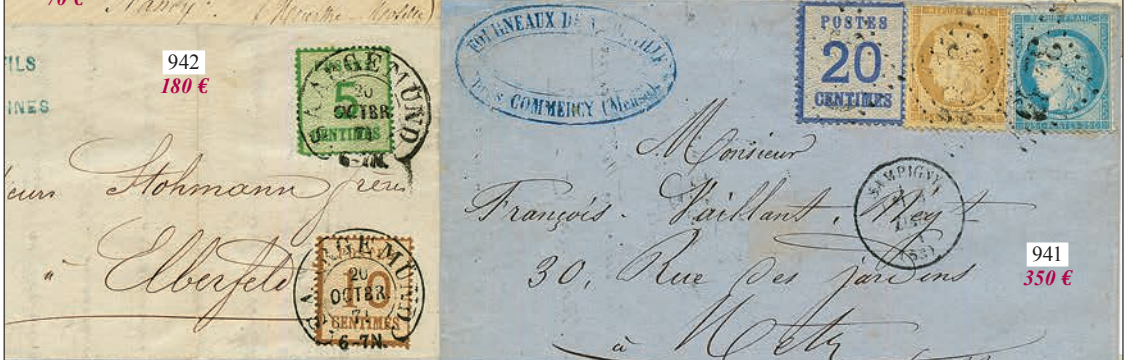 70 €
Nancy. (Meurthe-Moselle)
FILS
INES
942
180 €
5
CENTIMES
SAARGEMÜND
20
OCTBR
71
6-7N.
Stohmann frères
à Elberfeld
SAARGEMÜND
20
OCTBR
71
6-7N.
10
CENTIMES
COMMERCY (Meuse)
POSTES
20
CENTIMES
Monsieur
François Vaillant, Mey
30, Rue des jardins
à Metz
SAMPIGNY
(53)
941
350 €